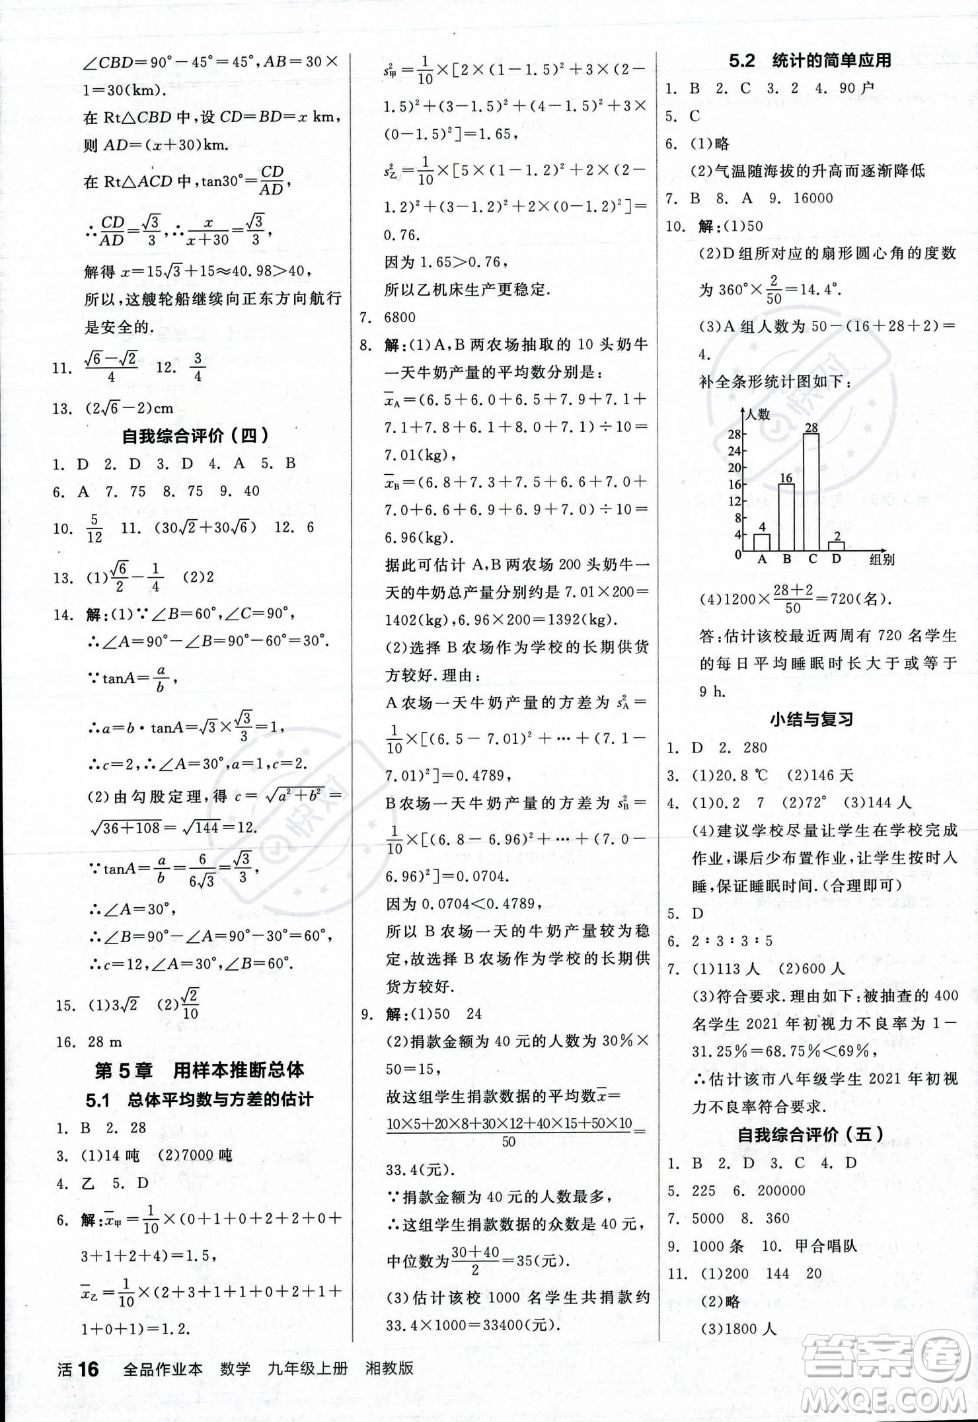 ∠CBD=90°-45°=45°, AB=30×
1=30(km).
在 Rt△CBD 中,设 CD=BD=x km,
则 AD=(x+30)km.
在 Rt△ACD 中, tan30°=CD/AD,
∴CD/AD=√3/3, ∴x/(x+30)=√3/3.
解得 x=15√3+15≈40.98>30,
所以,这艘轮船继续向正东方向航行
是安全的.
11. (√6-√2)/4 12. 3/4
13. (2√6-2)cm
自我综合评价(四)
1. D 2. D 3. D 4. A 5. B
6. A 7. 75 8. 75 9. 40
10. 5/12 11. (30√2+30√6) 12. 6
13. (1)√6/2-1/4 (2)2
14. 解:(1)∵∠B=60°,∠C=90°,
∴∠A=90°-∠B=90°-60°=30°.
∵tanA=a/b,
∴a=b·tanA=√3×√3/3=1,
∴c=2a=2.
(2)由勾股定理,得 c=√(a²+b²)=
√(36+108)=√144=12.
∵tanA=a/b=6/(6√3)=√3/3,
∴∠A=30°,
∴∠B=90°-∠A=60°,
∴c=12,∠A=30°,∠B=60°.
15. (1)3√2 (2)√2/10
16. 28 m
第 5 章 用样本推断总体
5.1 总体平均数与方差的估计
1. B 2. 28
3. (1)14 吨 (2)7000 吨
4. 乙 5. D
6. 解:x̄甲=1/10×(0+1+0+2+2+0+
3+1+2+4)=1.5,
x̄乙=1/10×(2+3+1+1+0+2+1+
1+0+1)=1.2.
s²甲=1/10×[2×(1-1.5)²+3×(2-
1.5)²+(3-1.5)²+(4-1.5)²+3×
(0-1.5)²]=1.65.
s²乙=1/10×[5×(1-1.2)²+2×(2-
1.2)²+(3-1.2)²+2×(0-1.2)²]=
0.76.
因为 1.65>0.76,
所以乙机床生产更稳定.
7. 6800
8. 解:(1)A,B 两农场抽取的 10 头奶牛
一天牛奶产量的平均数分别是:
x̄A=(6.5+6.0+6.5+7.9+7.1+
7.1+7.5+7.9+7.5+6.1)÷10=
7.01(kg),
x̄B=(6.8+7.3+7.5+6.7+6.8+
7.0+6.6+6.9+7.0+7.0)÷10=
6.96(kg).
据此可估计 A,B 两农场 200 头奶牛一
天的牛奶总产量分别约是 7.01×200=
1402(kg),6.96×200=1392(kg).
(2)选择 B 农场作为学校的长期供货
方较好.理由:
A 农场一天牛奶产量的方差为 s²A=
1/10×[(6.5-7.01)²+…+(6.1-
7.01)²]=0.4789.
B 农场一天牛奶产量的方差为 s²B=
1/10×[(6.8-6.96)²+…+(7.0-
6.96)²]=0.0704.
因为 0.0704<0.4789,
所以 B 农场一天的牛奶产量较稳定,
故选择 B 农场作为学校的长期供
货方较好.
9. 解:(1)50 24
(2)捐款金额为 40 元的人数为 50×
30%=15.
故这组学生捐款数据的平均数 x̄=
(10×5+20×8+30×12+40×15+50×10)/50=
33.4(元).
∵捐款金额为 40 元的人数最多,
∴这组学生捐款数据的众数为 40 元,
中位数为(30+40)/2=35(元).
(3)估计该校 1000 名学生共捐款约
33.4×1000=33400(元).
5.2 统计的简单应用
1. B 2. C 3. 2 4. 90 户
5. C
6. (1)略
(2)气温随海拔的升高而逐渐降低
7. B 8. A 9. 16000
10. 解:(1)50
(2)D 组所对应的扇形圆心角的度数
为 360°×2/50=14.4°.
(3)A 组人数为 50-(16+28+2)=
4.
补全条形统计图如下:
人数
28
24
20
16
12
8
4
0
4
16
28
2
A B C D 组别
(4)1200×(28+2)/50=720(名).
答:估计该校最近两周有 720 名学生
的每日平均睡眠时长大于或等于
9 h.
小结与复习
1. D 2. 280
3. (1)20.8 ℃ (2)146 天
4. (1)0.2 7 (2)72° (3)144 人
(4)建议学校尽量让学生在学校完成
作业,课后少布置作业,让学生及时入
睡,保证睡眠时间.(合理即可)
5. D
6. 2∶3∶3∶5
7. (1)113 人 (2)600 人
(3)符合要求.理由如下:被抽查的 400
名学生 2021 年初视力不良率为 1-
31.25%=68.75%<69%.
∴估计该市八年级学生 2021 年初视
力不良率符合要求.
自我综合评价(五)
1. B 2. D 3. C 4. D
5. 225 6. 200000
7. 5000 8. 360
9. 1000 条 10. 甲合唱队
11. (1)200 144 20
(2)略
(3)1800 人
活 16 全品作业本 数学 九年级上册 湘教版
MXQE.COM